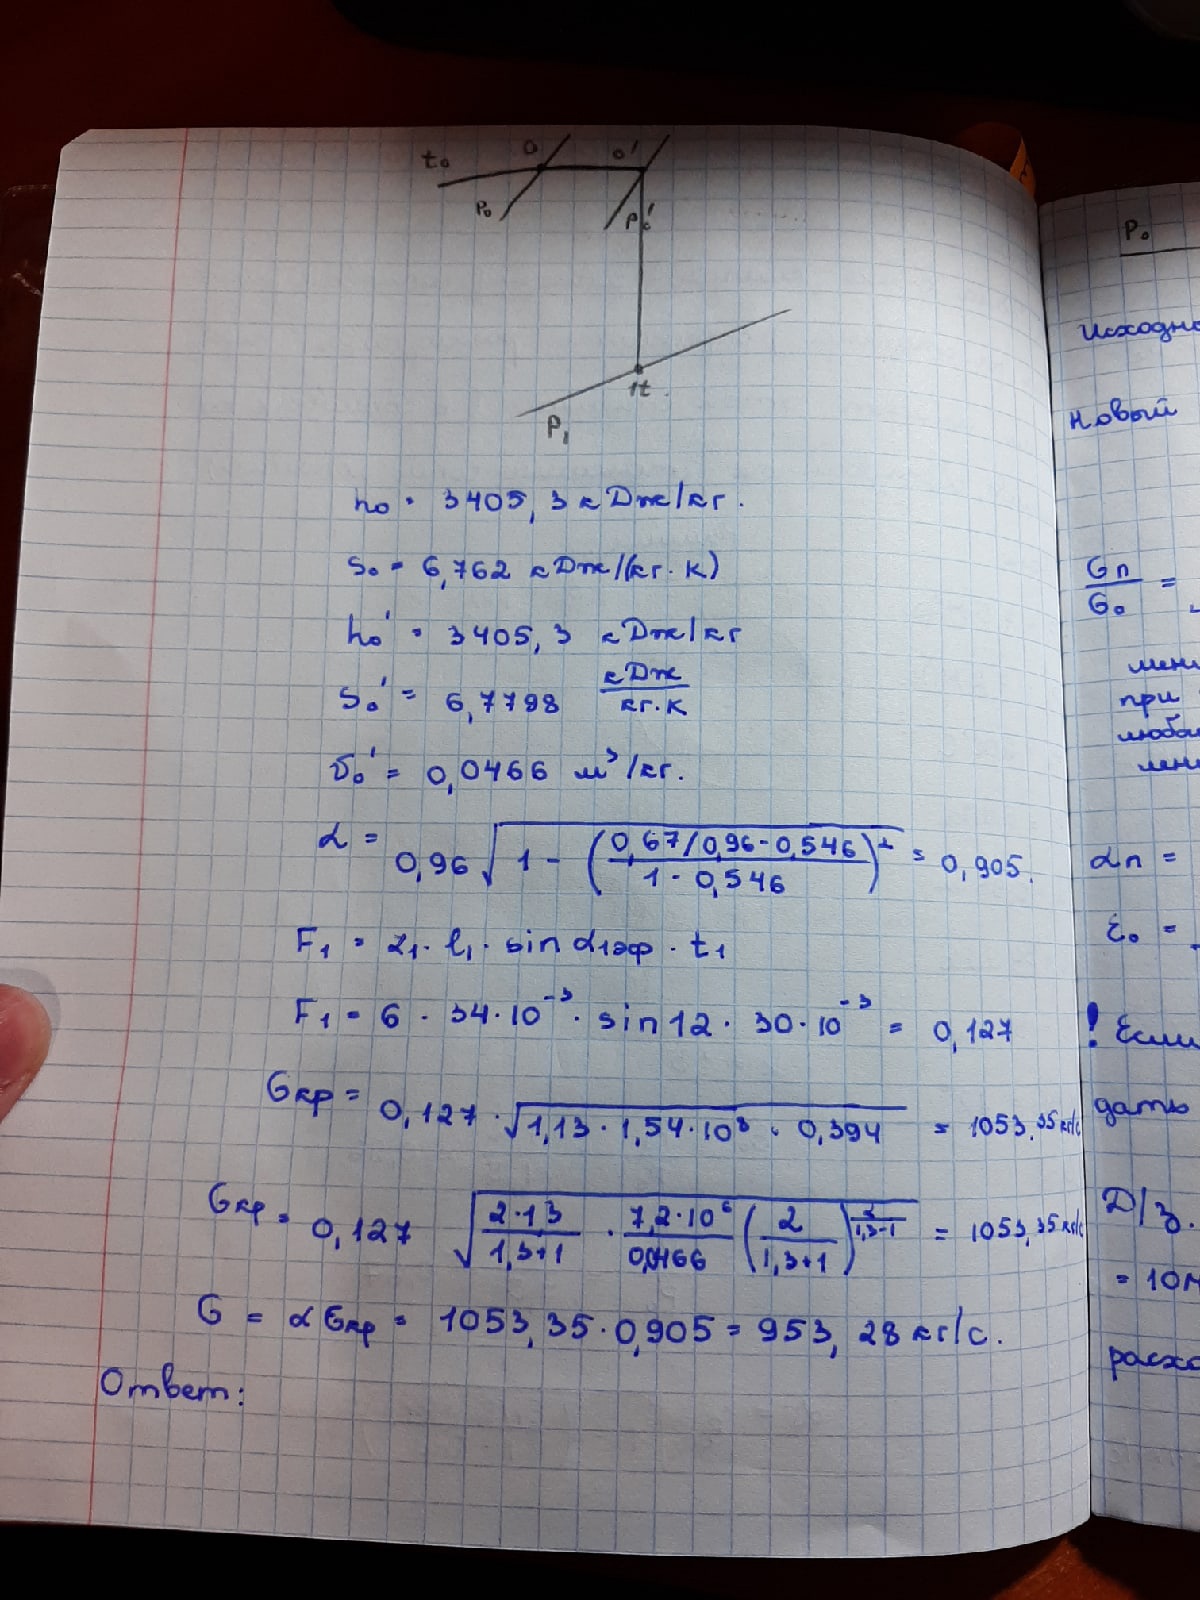 t₀ 0 0'
P₀ P₀'
1t
P₁
h₀ = 3405,3 кДж/кг.
s₀ = 6,762 кДж/(кг·К)
h₀' = 3405,3 кДж/кг
s₀' = 6,7798 кДж/кг·К
υ₀' = 0,0466 м³/кг.
α = 0,96 √(1 - ((0,67/0,96-0,546)/(1-0,546))²) = 0,905.
F₁ = z₁ · l₁ · sin α₁эф · t₁
F₁ = 6 · 34·10⁻³ · sin 12 · 30·10⁻³ = 0,127
Gкр = 0,127 · √(1,13 · 1,54·10⁸ · 0,394) = 1053,35 кг/с
Gкр = 0,127 √((2·1,3)/(1,3+1) · (7,2·10⁶)/(0,0466) (2/(1,3+1))^(2/(1,3-1))) = 1053,35 кг/с
G = α Gкр = 1053,35·0,905 = 953,28 кг/с.
Ответ:
P₀
Новый
Gп/G₀ =
при
αп =
ε₀ =
! Если
дать
Д/з.
= 10